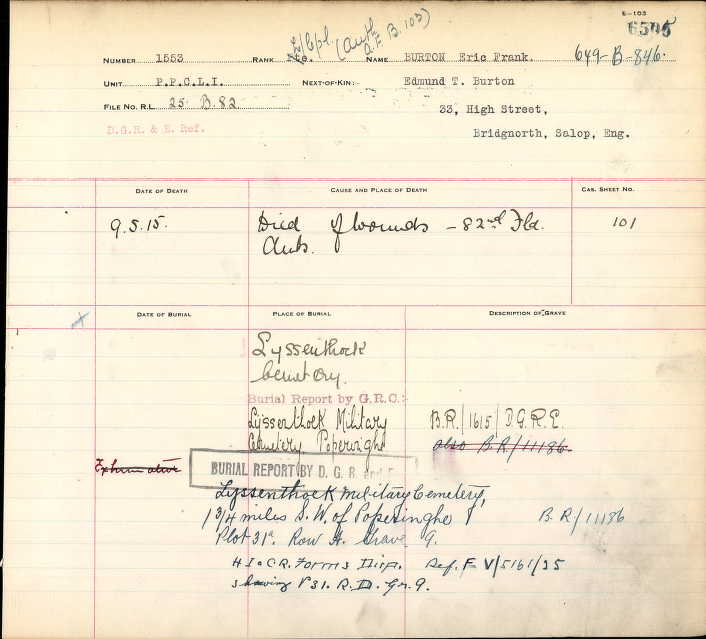 E-103
6505
L/Cpl. (Auth. A.F. B. 103)
NUMBER 1553 RANK Pte. NAME BURTON Eric Frank. 649-B-846.
UNIT P.P.C.L.I. NEXT-OF-KIN:- Edmund T. Burton
FILE NO. R.L. 25 B.82 33, High Street,
D.G.R. & E. Ref. Bridgnorth, Salop, Eng.
DATE OF DEATH CAUSE AND PLACE OF DEATH CAS. SHEET NO.
9.5.15. Died of Wounds - 82nd Fld. 101
Amb.
DATE OF BURIAL PLACE OF BURIAL DESCRIPTION OF GRAVE
Lyssenthock
Cemetery.
Burial Report by G.R.C:-
Lijssenthoek Military B.R/1615/D.G.R.E.
Cemetery Poperinghe also B.R/11186.
BURIAL REPORT BY D. G. R. and E.
Lyssenthoek Military Cemetery,
1 3/4 miles S.W. of Poperinghe B.R/11186
Plot 31a. Row A. Grave 9.
H I. & C.R. Forms Disp. Ref. F V/5161/35
showing P31. R.D. Gr.9.